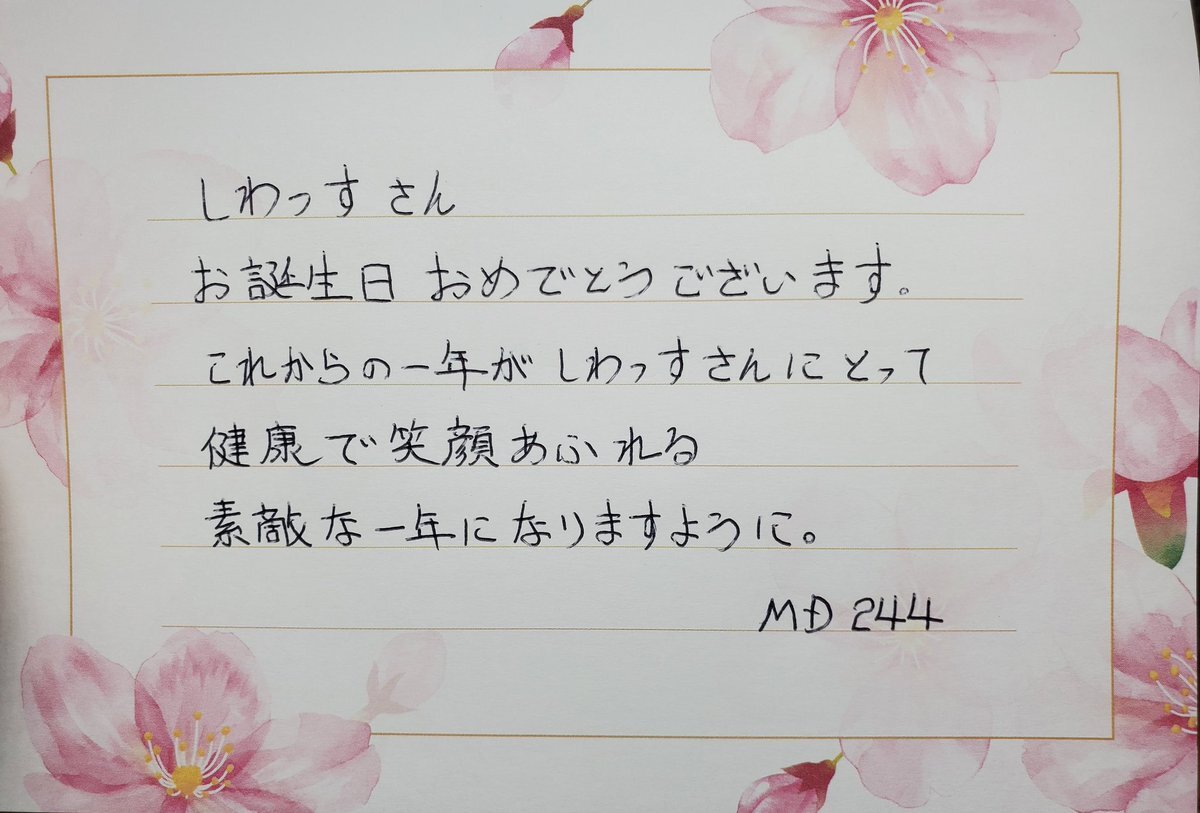 しわっす さん
お誕生日 おめでとうございます。
これからの一年が しわっすさんにとって
健康で笑顔あふれる
素敵な一年になりますように。
MD 244